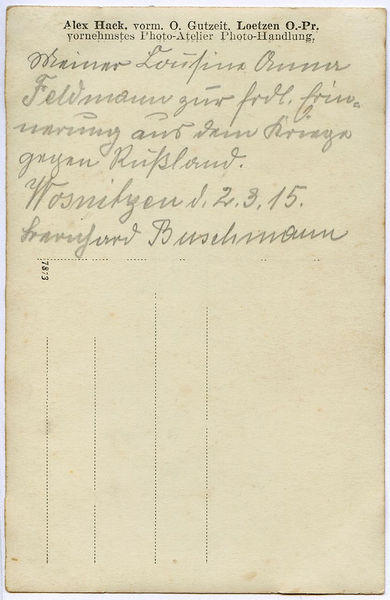 Alex Haek, vorm. O. Gutzeit, Loetzen O.-Pr.
vornehmstes Photo-Atelier Photo-Handlung,
Meiner Cousine Anna
Feldmann zur frdl. Erin-
nerung aus dem Kriege
gegen Rußland.
Wosnitzen d. 2.3.15.
Buschmann
7873